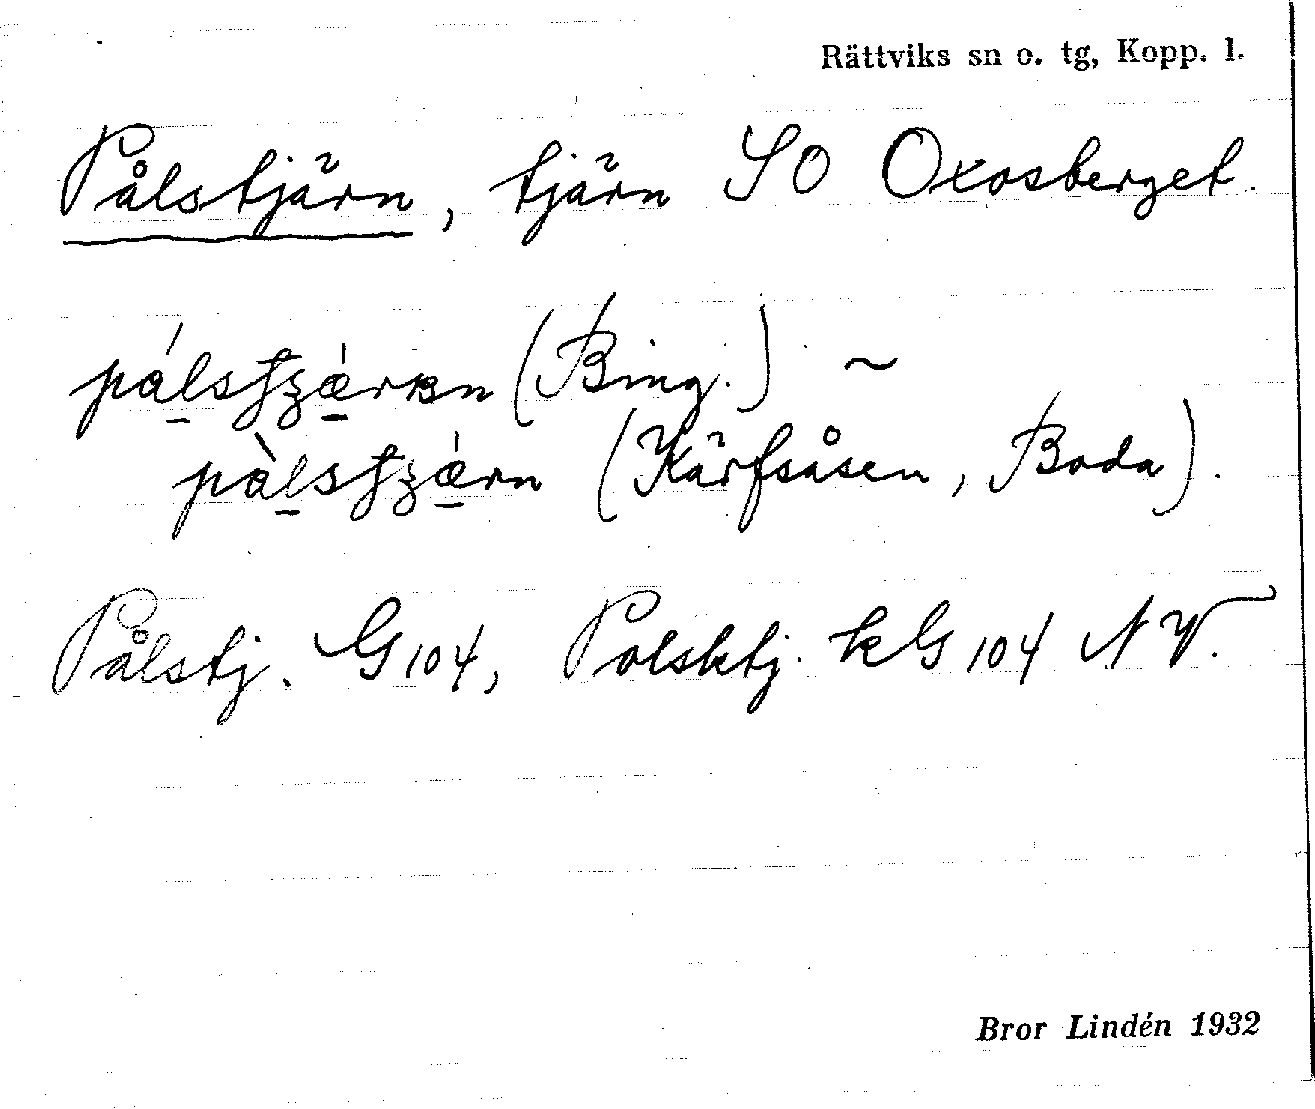 Rättviks sn o. tg, Kopp. l.
Pålstjärn, tjärn SO Oxosberget.
(Bing.) ~
(Kärfsåsen, Boda).
Pålstj. G104, Polsktj. kG104 NV.
Bror Lindén 1932